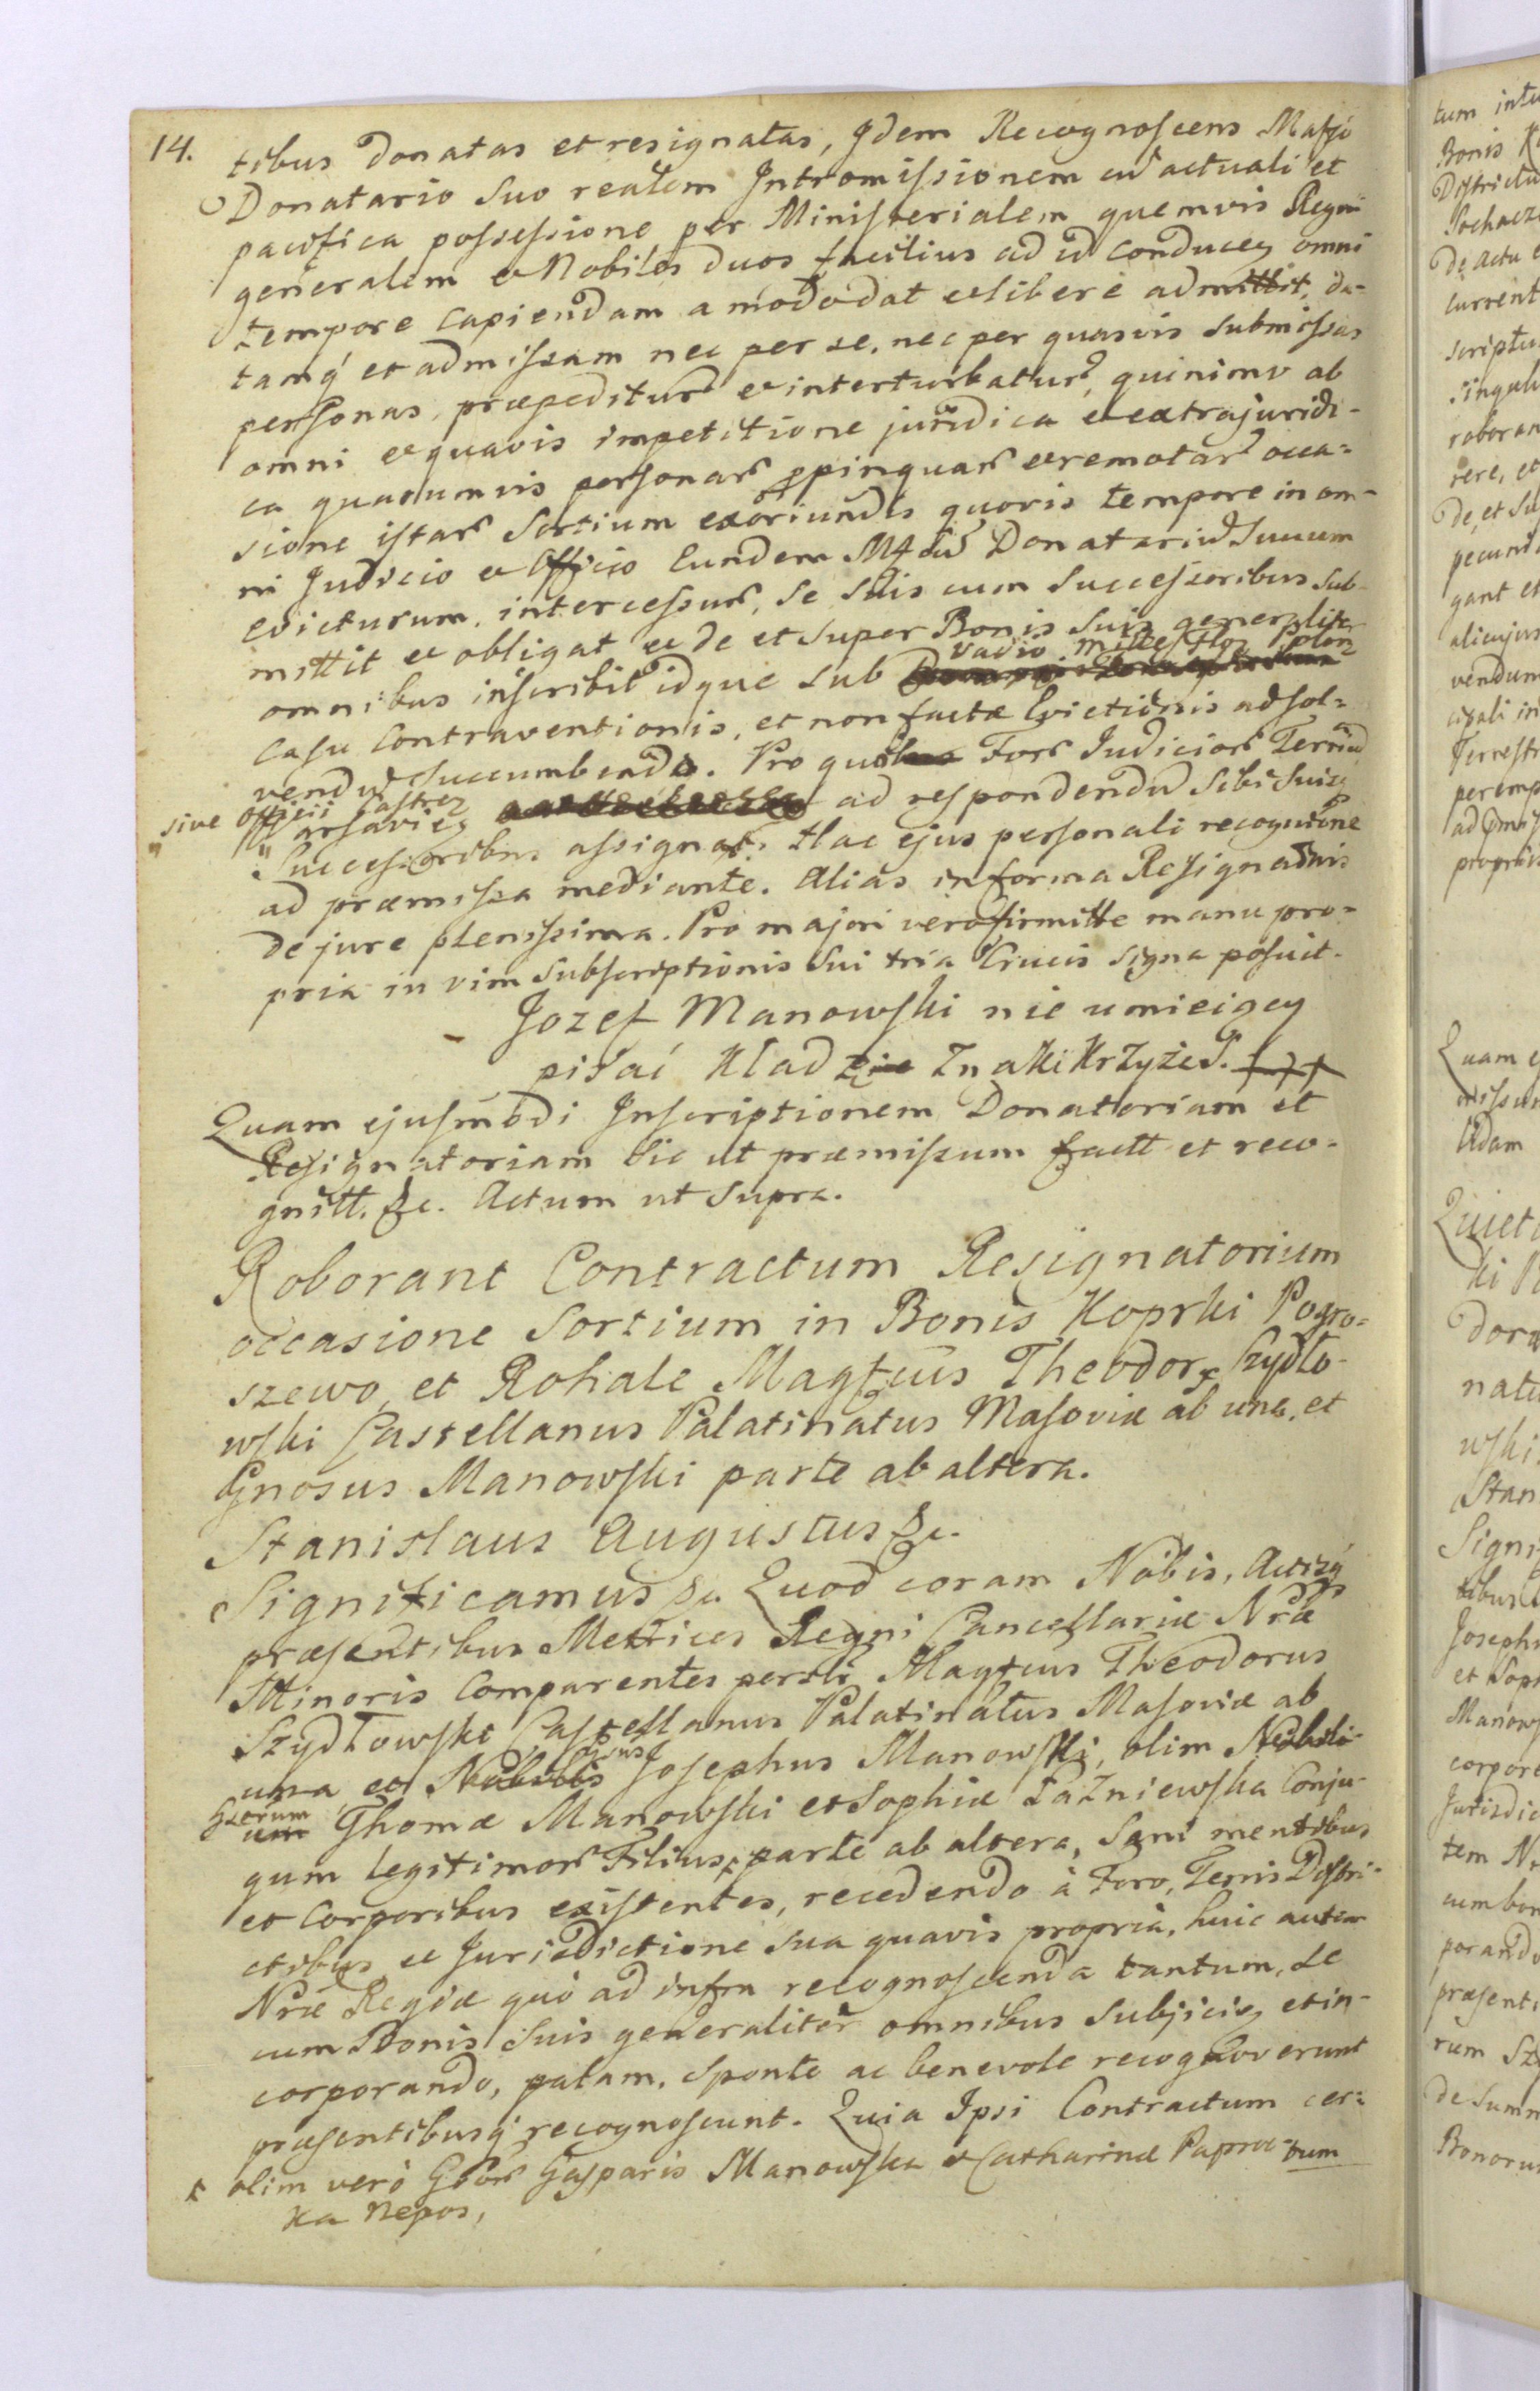 14.
tibus donatas et resignatas, Jdem Recognoscens Mafco
Donatario Suo realem Jntromissionem cũ actuali et
pacifica possessione per Ministerialem quemvis Regni
generalem & Nobiles duos facilius ad id conducen omni
tempore capiendam a modo dat & libere admittit, da-
tamq́ et admissam nec per se, nec per quasvis submissas
personas, præpediturũ & interturbaturũ, quinimo ab
omni & quavis impetitione juridica & extrajuridi-
ca quarumvis personarũ propinquarũ & remotarũ occa=
sione istarũ Sortium exoriundis quovis tempore in om-
ni Judicio & Officio Eundem Mfcũ Donatariũ Suum
evicturum, intercessurũ, Se Suis cum Successoribus sub-
mittit & obligat & de et super Bonis Suis generaliter
omnibus inscribit idque sub Vadio Mille Flor Polon
casu contraventionis, et non factæ Evictionis ad sol=
vendũ succumbendo. Pro quo Forũ Judiciorũ Terrium
sive Officii Castren
Varsavien ad respondendũ Sibi Suisq
Successoribus assignat. Hac ejus personali recognitione
ad præmissa mediante. Alias in forma Resignationis
de jure plenissima. Pro majori vero firmitte manu pro=
pria in vim subscriptionis sui tria Crucis signa posuit.
Jozef Manowski nie umieiący
pisać Kładzie Znaki Krzyżes. †††
Quam ejusmodi Jnscriptionem Donatoriam et
Resignatoriam Sic ut præmissum factt et reco-
gnitt. &c. Actum ut supra.
Roborant Contractum Resignatorium
occasione Sortium in Bonis Koprki Pogro=
szewo, et Rohale Magfcus Theodor Szydło-
wski Castellanus Palatinatus Masoviæ ab una, et
Gnosus Manowski parte ab altera.
Stanislaus Augustus &c.
Significamus &c. Quod coram Nobis, Actisq́
præsentibus Metrices Regni Cancellariæ Nrǽ
Minoris Comparentes persłr Magfcus Theodorus
Szydłowski Castellanus Palatinatus Masoviæ ab
una et Nobilis Gsus Josephus Manowski, olim Nobili-
Gsorum um Thomæ Manowski et Sophiæ Łaźniewska Conju-
gum legitimorũ Filius, ŧ parte ab altera, Sani mentibus
et Corporibus existentes, recedendo à Foro, Terris Distri-
ctibus & Jurisdictione sua quavis propria, huic autem
Nrǽ Regiæ quò ad infra recognoscenda tantum, Se
cum Bonis Suis generaliter omnibus Subjicien et in-
corporando, palam, sponte ac benevole recognoverunt
præsentibusq́ recognoscunt. Quia Ipsi Contractum cer=
tum
ŧ olim verò Gsorũ Gasparis Manowska & Catharinæ Paproc-
ka Nepos,